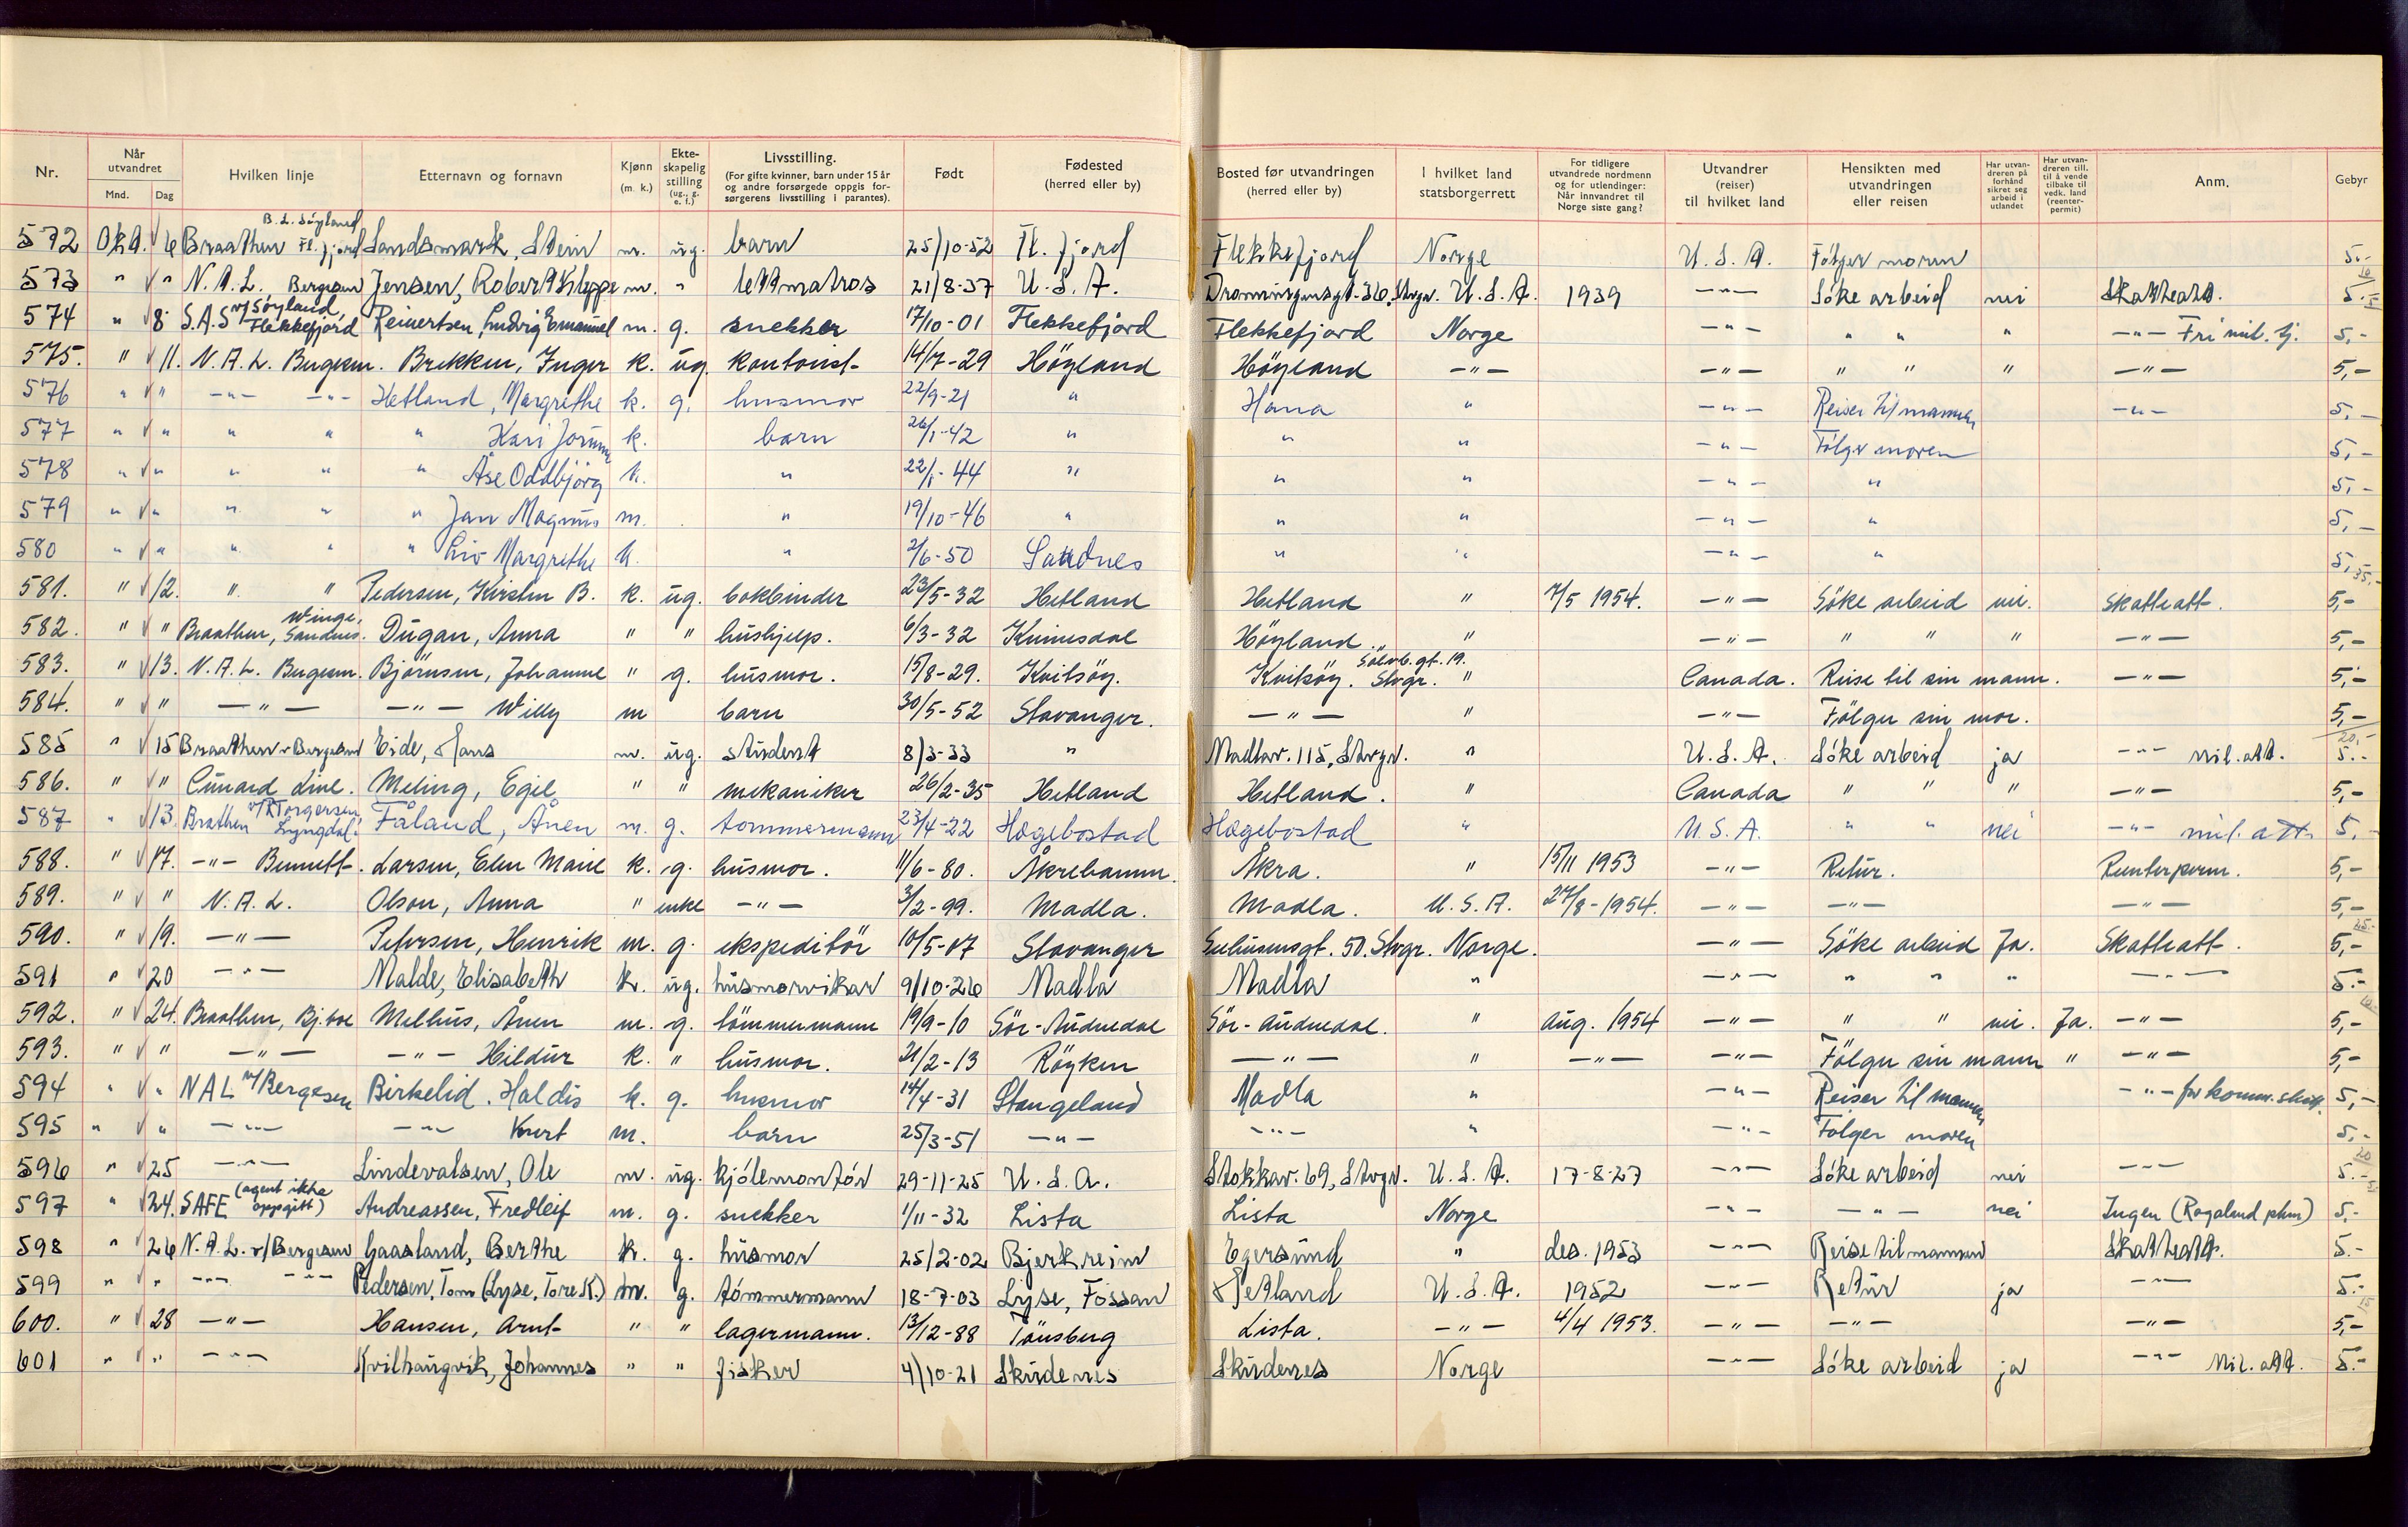 Nr. | Når utvandret Mnd. Dag | Hvilken linje | Etternavn og fornavn | Kjønn (m. k.) | Ekteskapelig stilling (ug., g. e. f.) | Livsstilling. (For gifte kvinner, barn under 15 år og andre forsørgede oppgis forsørgerens livsstilling i parantes). | Født | Fødested (herred eller by) | Bosted før utvandringen (herred eller by) | I hvilket land statsborgerrett | For tidligere utvandrede nordmenn og for utlendinger: Når innvandret til Norge siste gang? | Utvandrer (reiser) til hvilket land | Hensikten med utvandringen eller reisen | Har utvandreren på forhånd sikret seg arbeid i utlandet | Har utvandreren till. til å vende tilbake til vedk. land (reenterpermit) | Anm. | Gebyr
572 Okt. √ 6 Braathen B. L. Søyland Fl.fjord Landsmark, Stein m. ug. barn 25/10-52 Fl.fjord Flekkefjord Norge U.S.A. Følger moren 5.-
573 " √ " N.A.L. Bergesen Jensen, Robert Kleppe m. " lettmatros 21/8-37 U.S.A. Dronningensgt. 36, Stvgr. U.S.A. 1939 -"- Søke arbeid nei Skatteatt. 5.-
574 " √ 8 S.A.S. v/Søyland, Flekkefjord Reinertsen, Ludvig Emanuel m. g. snekker 17/10-01 Flekkefjord Flekkefjord Norge -"- " " " -"- Fri mil. tj. 5,-
575. " √ 11. N.A.L. Bergesen. Brekken, Inger k. ug. kontorist- 14/7-29 Høyland Høyland -"- -"- " " " -"- 5,-
576 " √ " -"- -"- Hetland, Margrethe k. g. husmor 22/9-21 " Hana " -"- Reiser til mannen -"- 5,-
577 " √ " " " " Kari Jorunn k. barn 26/1-42 " " " -"- Følger moren 5,-
578 " √ " " " " Åse Oddbjørg k. " 22/1-44 " " " -"- " 5,-
579 " √ " " " " Jan Magnus m. " 19/10-46 " " " -"- " 5,-
580 " √ " " " " Liv Margrethe k. " 2/6-50 Sandnes " " -"- " 5,- 35,-
581. " √ 12. " " Pedersen, Kirsten B. k. ug. bokbinder 23/5-32 Hetland Hetland " 7/5 1954. -"- Søke arbeid nei. Skatteatt. 5,-
582. " √ " Braathen, Winge, Sandnes. Dugan, Anna " " hushjelp. 6/3-32 Kvinesdal Høyland " -"- " " " -"- 5,-
583. " √ 13. N.A.L. Bergesen. Bjørnsen, Johanne " g. husmor. 15/8-29. Kvitsøy. Kvitsøy. Sølvb.gt. 19. Stvgr. " Canada. Reise til sin mann. -"- 5,-
584. " √ " -"- -"- Willy m barn 30/5-52 Stavanger. -"- " -"- Følger sin mor. 5,-
585 " √ 15 Braathen v. Bergesen Eide, Hans m. ug. student 8/3-33 " Madlav. 115, Stvgr. " U.S.A. Søke arbeid ja -"- Mil. att. 5.-
586. " √ " Cunard Line. Meling, Egil " " mekaniker 26/2-35 Hetland Hetland. " Canada " " " -"- 5,-
587 " √ 13. Brathen Lyngdal. Fåland, Ånen m. g. tommermann 23/4-22 Hægebostad Hægebostad " U.S.A. " " nei -"- mil. att. 5.-
588. " √ 17. -"- Bennett. Larsen, Elen Marie k. g. husmor. 11/6-80. Åkrehamn. Åkra. " 15/11 1953 -"- Retur. Reenterperm. 5,-
589. " √ " N.A.L. Olson, Anna " enke -"- 3/2-99. Madla. Madla. U.S.A. 27/8-1954. -"- -"- -"- 5,-
590. " √ 19. -"- Petersen, Henrik m. g. ekspeditør 10/5-17 Stavanger Seehusensgt. 50. Stvgr. Norge. -"- Søke arbeid Ja. Skatteatt. 5,-
591 " √ 20 -"- Malde, Elisabeth k. ug. husmorvikar 9/10-26 Madla Madla " -"- " " " -"- 5.-
592. " √ 24. Braathen, Melhus, Ånen m. g. tømmermann 19/9-10 Sør-Audnedal Sør-Audnedal. " aug. 1954 -"- " " nei. Ja. -"- 5,-
593. " √ " -"- -"- Hildur k. " husmor. 21/2-13 Røyken -"- " -"- -"- Følger sin mann " -"- 5,-
594 " √ " NAL v/Bergesen Birkelid. Haldis k. g. husmor 14/4-31 Stangeland Madla " -"- Reiser til mannen -"- for komm. skatt. 5,-
595 " √ " -"- -"- Knut m. barn 25/3-51 -"- -"- " -"- Følger moren 5,-
596 " √ 25 -"- Lindevalsen, Ole m. ug. kjølemontør 29-11-25 U.S.A. Stokkav. 69, Stvgr. U.S.A. 17-8-27 -"- Søke arbeid nei -"- 5.-
597 " √ 24. SAFE (agent ikke oppgitt) Andreassen, Fredleif m. g. snekker 1/11-32 Lista Lista Norge -"- -"- nei Ingen (Rogaland pkm) 5,-
598 " √ 26 N.A.L. v/Bergesen Gaasland, Berthe k. g. husmor 25/2-02 Bjerkreim Egersund " des. 1953 -"- Reise til mannen Skatteatt. 5.-
599 " √ " -"- -"- Pedersen, Tom (Lyse, Tore K.) m. g. tømmermann 18-7-03 Lyse, Fossan Hetland U.S.A. 1952 -"- Retur ja -"- 5.-
600. " √ 28 -"- Hansen, Arnt " " lagermann. 13/12-88 Tønsberg Lista. -"- 4/4 1953. -"- -"- -"- 5,-
601 " √ " -"- Kvilhaugvik, Johannes " " fisker 4/10-21 Skudenes Skudenes Norge -"- Søke arbeid ja -"- Mil. att. 5.-